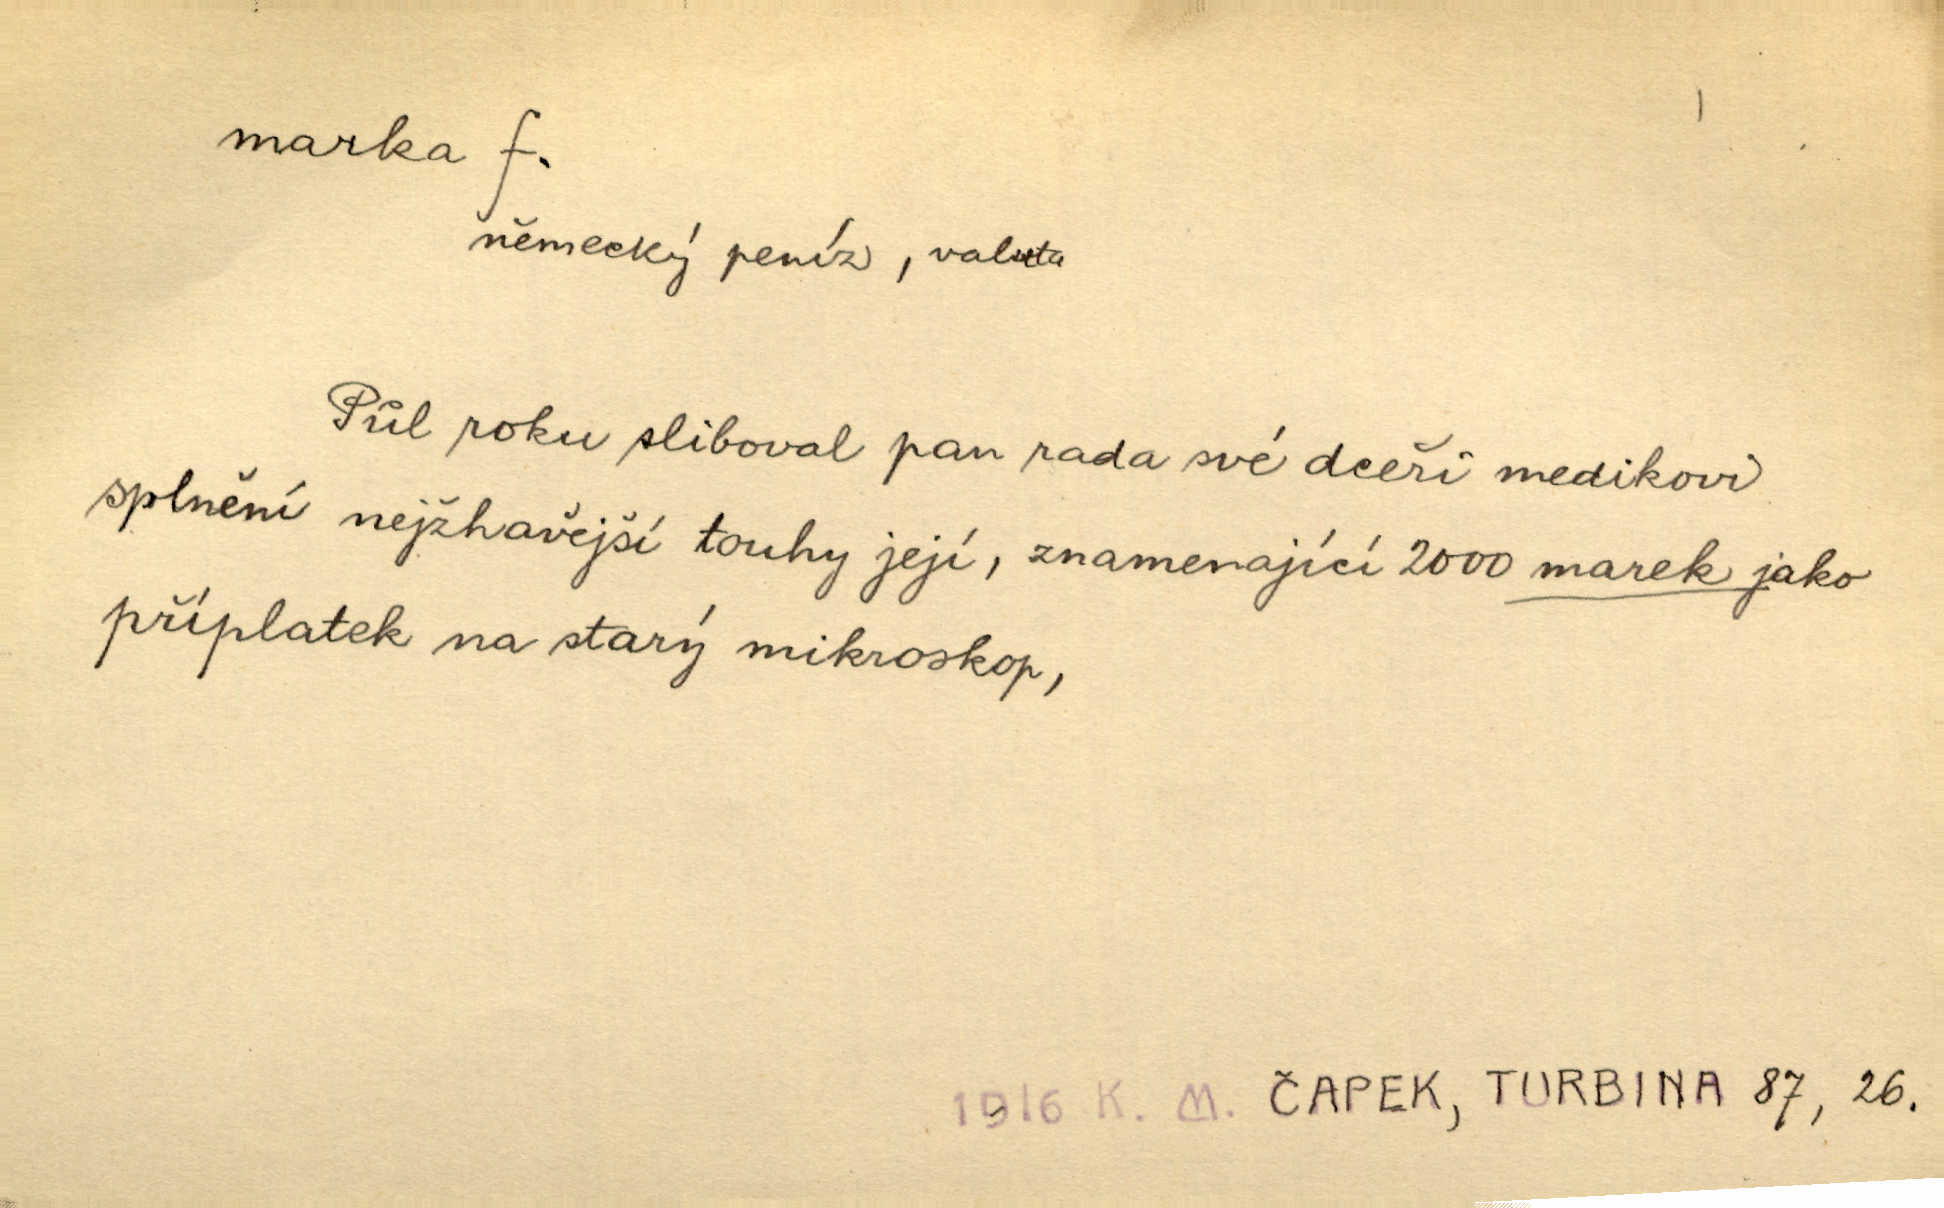 marka f.
německý peníz, valuta
Půl roku sliboval pan rada své dceři medikovi
splnění nejžhavější touhy její, znamenající 2000 marek jako
příplatek na starý mikroskop,
1916 K. M. ČAPEK, TURBINA 87, 26.